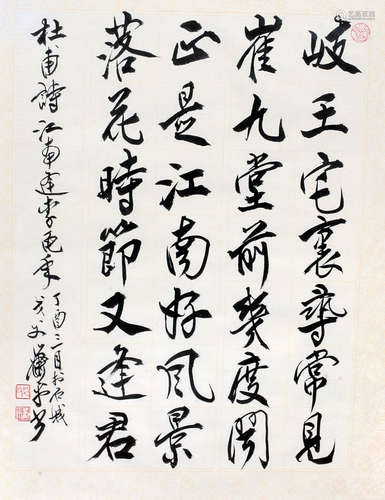 岐王宅裏尋常見
崔九堂前幾度聞
正是江南好風景
落花時節又逢君
杜甫詩江南逢李龜年
丁酉三月於石城